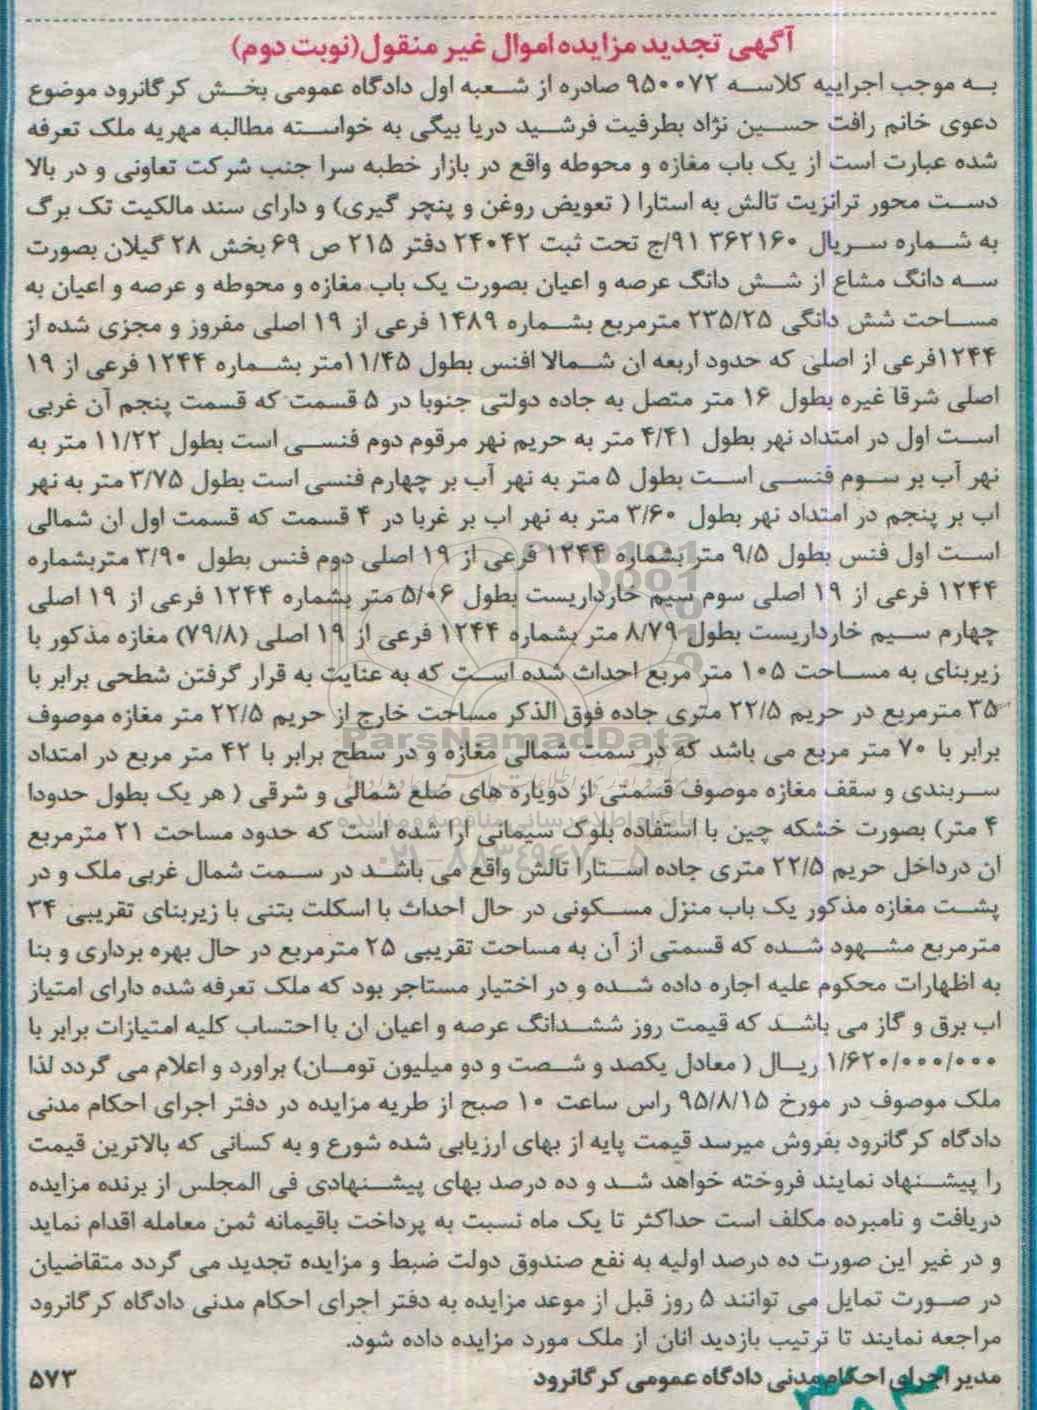 آگهی تجدید مزایده اموال غیر منقول(نوبت دوم)
به موجب اجراییه کلاسه ۹۵۰۰۷۲ صادره از شعبه اول دادگاه عمومی بخش کرگانرود موضوع
دعوی خانم رافت حسین نژاد بطرفیت فرشید دریا بیگی به خواسته مطالبه مهریه ملک تعرفه
شده عبارت است از یک باب مغازه و محوطه واقع در بازار خطبه سرا جنب شرکت تعاونی و در بالا
دست محور ترانزیت تالش به استارا ( تعویض روغن و پنچر گیری) و دارای سند مالکیت تک برگ
به شماره سریال ۳۶۲۱۶۰ ۹۱/ج تحت ثبت ۲۴۰۴۲ دفتر ۲۱۵ ص ۶۹ بخش ۲۸ گیلان بصورت
سه دانگ مشاع از شش دانگ عرصه و اعیان بصورت یک باب مغازه و محوطه و عرصه و اعیان به
مساحت شش دانگی ۲۳۵/۲۵ مترمربع بشماره ۱۴۸۹ فرعی از ۱۹ اصلی مفروز و مجزی شده از
۱۲۴۴فرعی از اصلی که حدود اربعه ان شمالا افنس بطول ۱۱/۴۵متر بشماره ۱۲۴۴ فرعی از ۱۹
اصلی شرقا غیره بطول ۱۶ متر متصل به جاده دولتی جنوبا در ۵ قسمت که قسمت پنجم آن غربی
است اول در امتداد نهر بطول ۴/۴۱ متر به حریم نهر مرقوم دوم فنسی است بطول ۱۱/۲۲ متر به
نهر آب بر سوم فنسی است بطول ۵ متر به نهر آب بر چهارم فنسی است بطول ۳/۷۵ متر به نهر
اب بر پنجم در امتداد نهر بطول ۳/۶۰ متر به نهر اب بر غربا در ۴ قسمت که قسمت اول ان شمالی
است اول فنس بطول ۹/۵ متر بشماره ۱۲۴۴ فرعی از ۱۹ اصلی دوم فنس بطول ۳/۹۰ متربشماره
۱۲۴۴ فرعی از ۱۹ اصلی سوم سیم خارداریست بطول ۵/۰۶ متر بشماره ۱۲۴۴ فرعی از ۱۹ اصلی
چهارم سیم خارداریست بطول ۸/۷۹ متر بشماره ۱۲۴۴ فرعی از ۱۹ اصلی (۷۹/۸) مغازه مذکور با
زیربنای به مساحت ۱۰۵ متر مربع احداث شده است که به عنایت به قرار گرفتن شطحی برابر با
۳۵ مترمربع در حریم ۲۲/۵ متری جاده فوق الذکر مساحت خارج از حریم ۲۲/۵ متر مغازه موصوف
برابر با ۷۰ متر مربع می باشد که در سمت شمالی مغازه و در سطح برابر با ۴۲ متر مربع در امتداد
سربندی و سقف مغازه موصوف قسمتی از دوپاره های ضلع شمالی و شرقی ( هر یک بطول حدودا
۴ متر) بصورت خشکه چین با استفاده بلوک سیمانی ارا شده است که حدود مساحت ۲۱ مترمربع
ان درداخل حریم ۲۲/۵ متری جاده استارا تالش واقع می باشد در سمت شمال غربی ملک و در
پشت مغازه مذکور یک باب منزل مسکونی در حال احداث با اسکلت بتنی با زیربنای تقریبی ۳۴
مترمربع مشهود شده که قسمتی از آن به مساحت تقریبی ۲۵ مترمربع در حال بهره برداری و بنا
به اظهارات محکوم علیه اجاره داده شده و در اختیار مستاجر بود که ملک تعرفه شده دارای امتیاز
اب برق و گاز می باشد که قیمت روز ششدانگ عرصه و اعیان ان با احتساب کلیه امتیازات برابر با
۱/۶۲۰/۰۰۰/۰۰۰ ریال ( معادل یکصد و شصت و دو میلیون تومان) براورد و اعلام می گردد لذا
ملک موصوف در مورخ ۹۵/۸/۱۵ راس ساعت ۱۰ صبح از طریه مزایده در دفتر اجرای احکام مدنی
دادگاه کرگانرود بفروش میرسد قیمت پایه از بهای ارزیابی شده شورع و به کسانی که بالاترین قیمت
را پیشنهاد نمایند فروخته خواهد شد و ده درصد بهای پیشنهادی فی المجلس از برنده مزایده
دریافت و نامبرده مکلف است حداکثر تا یک ماه نسبت به پرداخت باقیمانه ثمن معامله اقدام نماید
و در غیر این صورت ده درصد اولیه به نفع صندوق دولت ضبط و مزایده تجدید می گردد متقاضیان
در صورت تمایل می توانند ۵ روز قبل از موعد مزایده به دفتر اجرای احکام مدنی دادگاه کرگانرود
مراجعه نمایند تا ترتیب بازدید انان از ملک مورد مزایده داده شود.
مدیر اجرای احکام مدنی دادگاه عمومی کرگانرود ۵۷۳
ParsNamadData
پایگاه اطلاع رسانی مناقصه و مزایده
۰۲۱-۸۸۳۴۹۶۷۰-۵